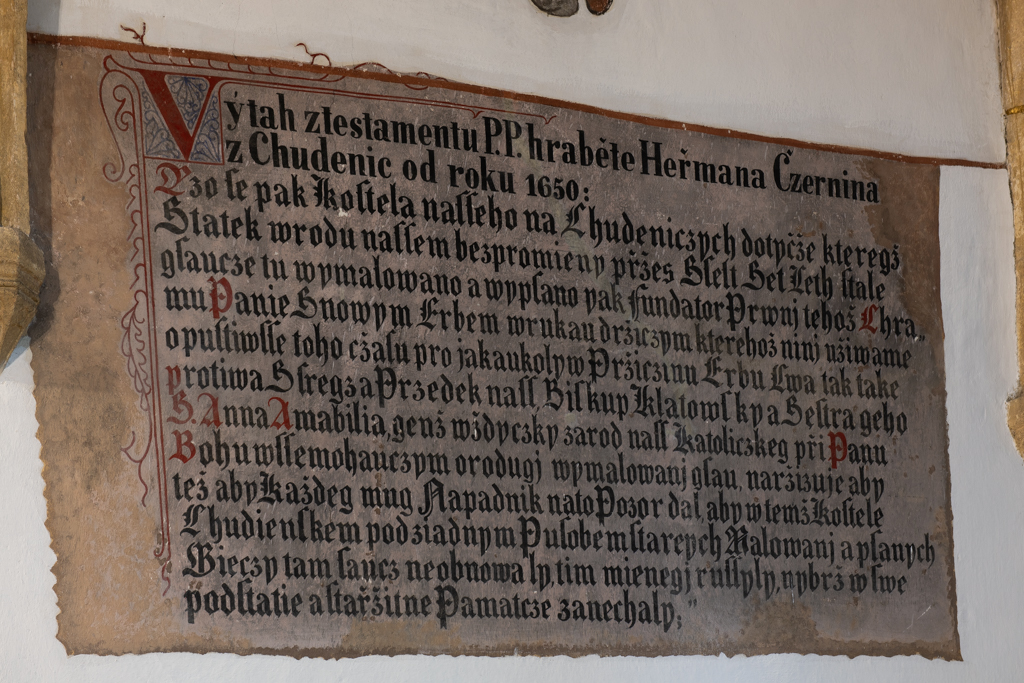 Výtah ztestamentu P.P. hraběte Heřmana Czernina
z Chudenic od roku 1650:
Czo se pak Kostela nasseho na Chudeniczych dotyčže kteregž
Statek wrodu nassem bezpromieny přžes Sselt Set Leth stale
gsaucze tu wymalowano a wypsano pak fundator Prwnj tehož Chra„
mu Panie Synowým Erbem wrukau držiczym kterehož ninj užiwame
opustiwsse toho cžasu pro jakaukolyw Pržiczinu Erbu Lwa tak take
protiwa S fregz a Przedek nass, Biskup Klatowsky a Sestra geho
S. Anna Amabilia, genž wždyczky zarod nass Katoliczkeg při Panu
Bohu wssemohauczym orodugj wymalowanj gsau, naržizuje aby
též aby Každeg mug Napadnik nato Pozor dal, aby w temž Kostele
Chudienskem pod žiadnym Pusobem starych Malowanj a psanych
Wieczy tam saucz neobnowaly, tim mienegj russyly, nybrž w swe
podstatie a staržitne Pamatcze zanechaly;"